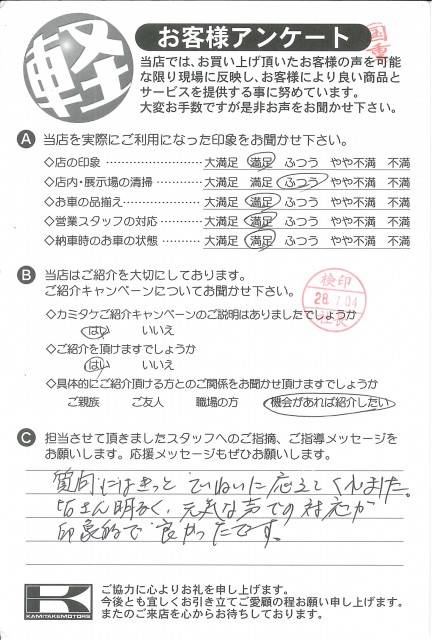 軽
お客様アンケート
当店では、お買い上げ頂いたお客様の声を可能
な限り現場に反映し、お客様により良い商品と
サービスを提供する事に努めています。
大変お手数ですが是非お声をお聞かせ下さい。
A 当店を実際にご利用になった印象をお聞かせ下さい。
◇店の印象 ………………… 大満足 満足 ふつう やや不満 不満
◇店内・展示場の清掃……… 大満足 満足 ふつう やや不満 不満
◇お車の品揃え……………… 大満足 満足 ふつう やや不満 不満
◇営業スタッフの対応 ……… 大満足 満足 ふつう やや不満 不満
◇納車時のお車の状態 ……… 大満足 満足 ふつう やや不満 不満
B 当店はご紹介を大切にしております。
ご紹介キャンペーンについてお聞かせ下さい。
検印
28.7.04
社長
◇カミタケご紹介キャンペーンのご説明はありましたでしょうか
はい いいえ
◇ご紹介を頂けますでしょうか
はい いいえ
◇具体的にご紹介頂ける方とのご関係をお聞かせ頂けますでしょうか
ご親族 ご友人 職場の方 機会があれば紹介したい
C 担当させて頂きましたスタッフへのご指摘、ご指導メッセージを
お願いします。応援メッセージもぜひお願いします。
質問にはきっと ていねいに応えてくれました。
皆さん明るく、元気な声での対応が
印象的で良かったです。
KAMITAKEMOTORS
ご協力に心よりお礼を申し上げます。
今後とも宜しくお引き立てご愛顧の程お願い申し上げます。
またのご来店を心からお待ちしております。